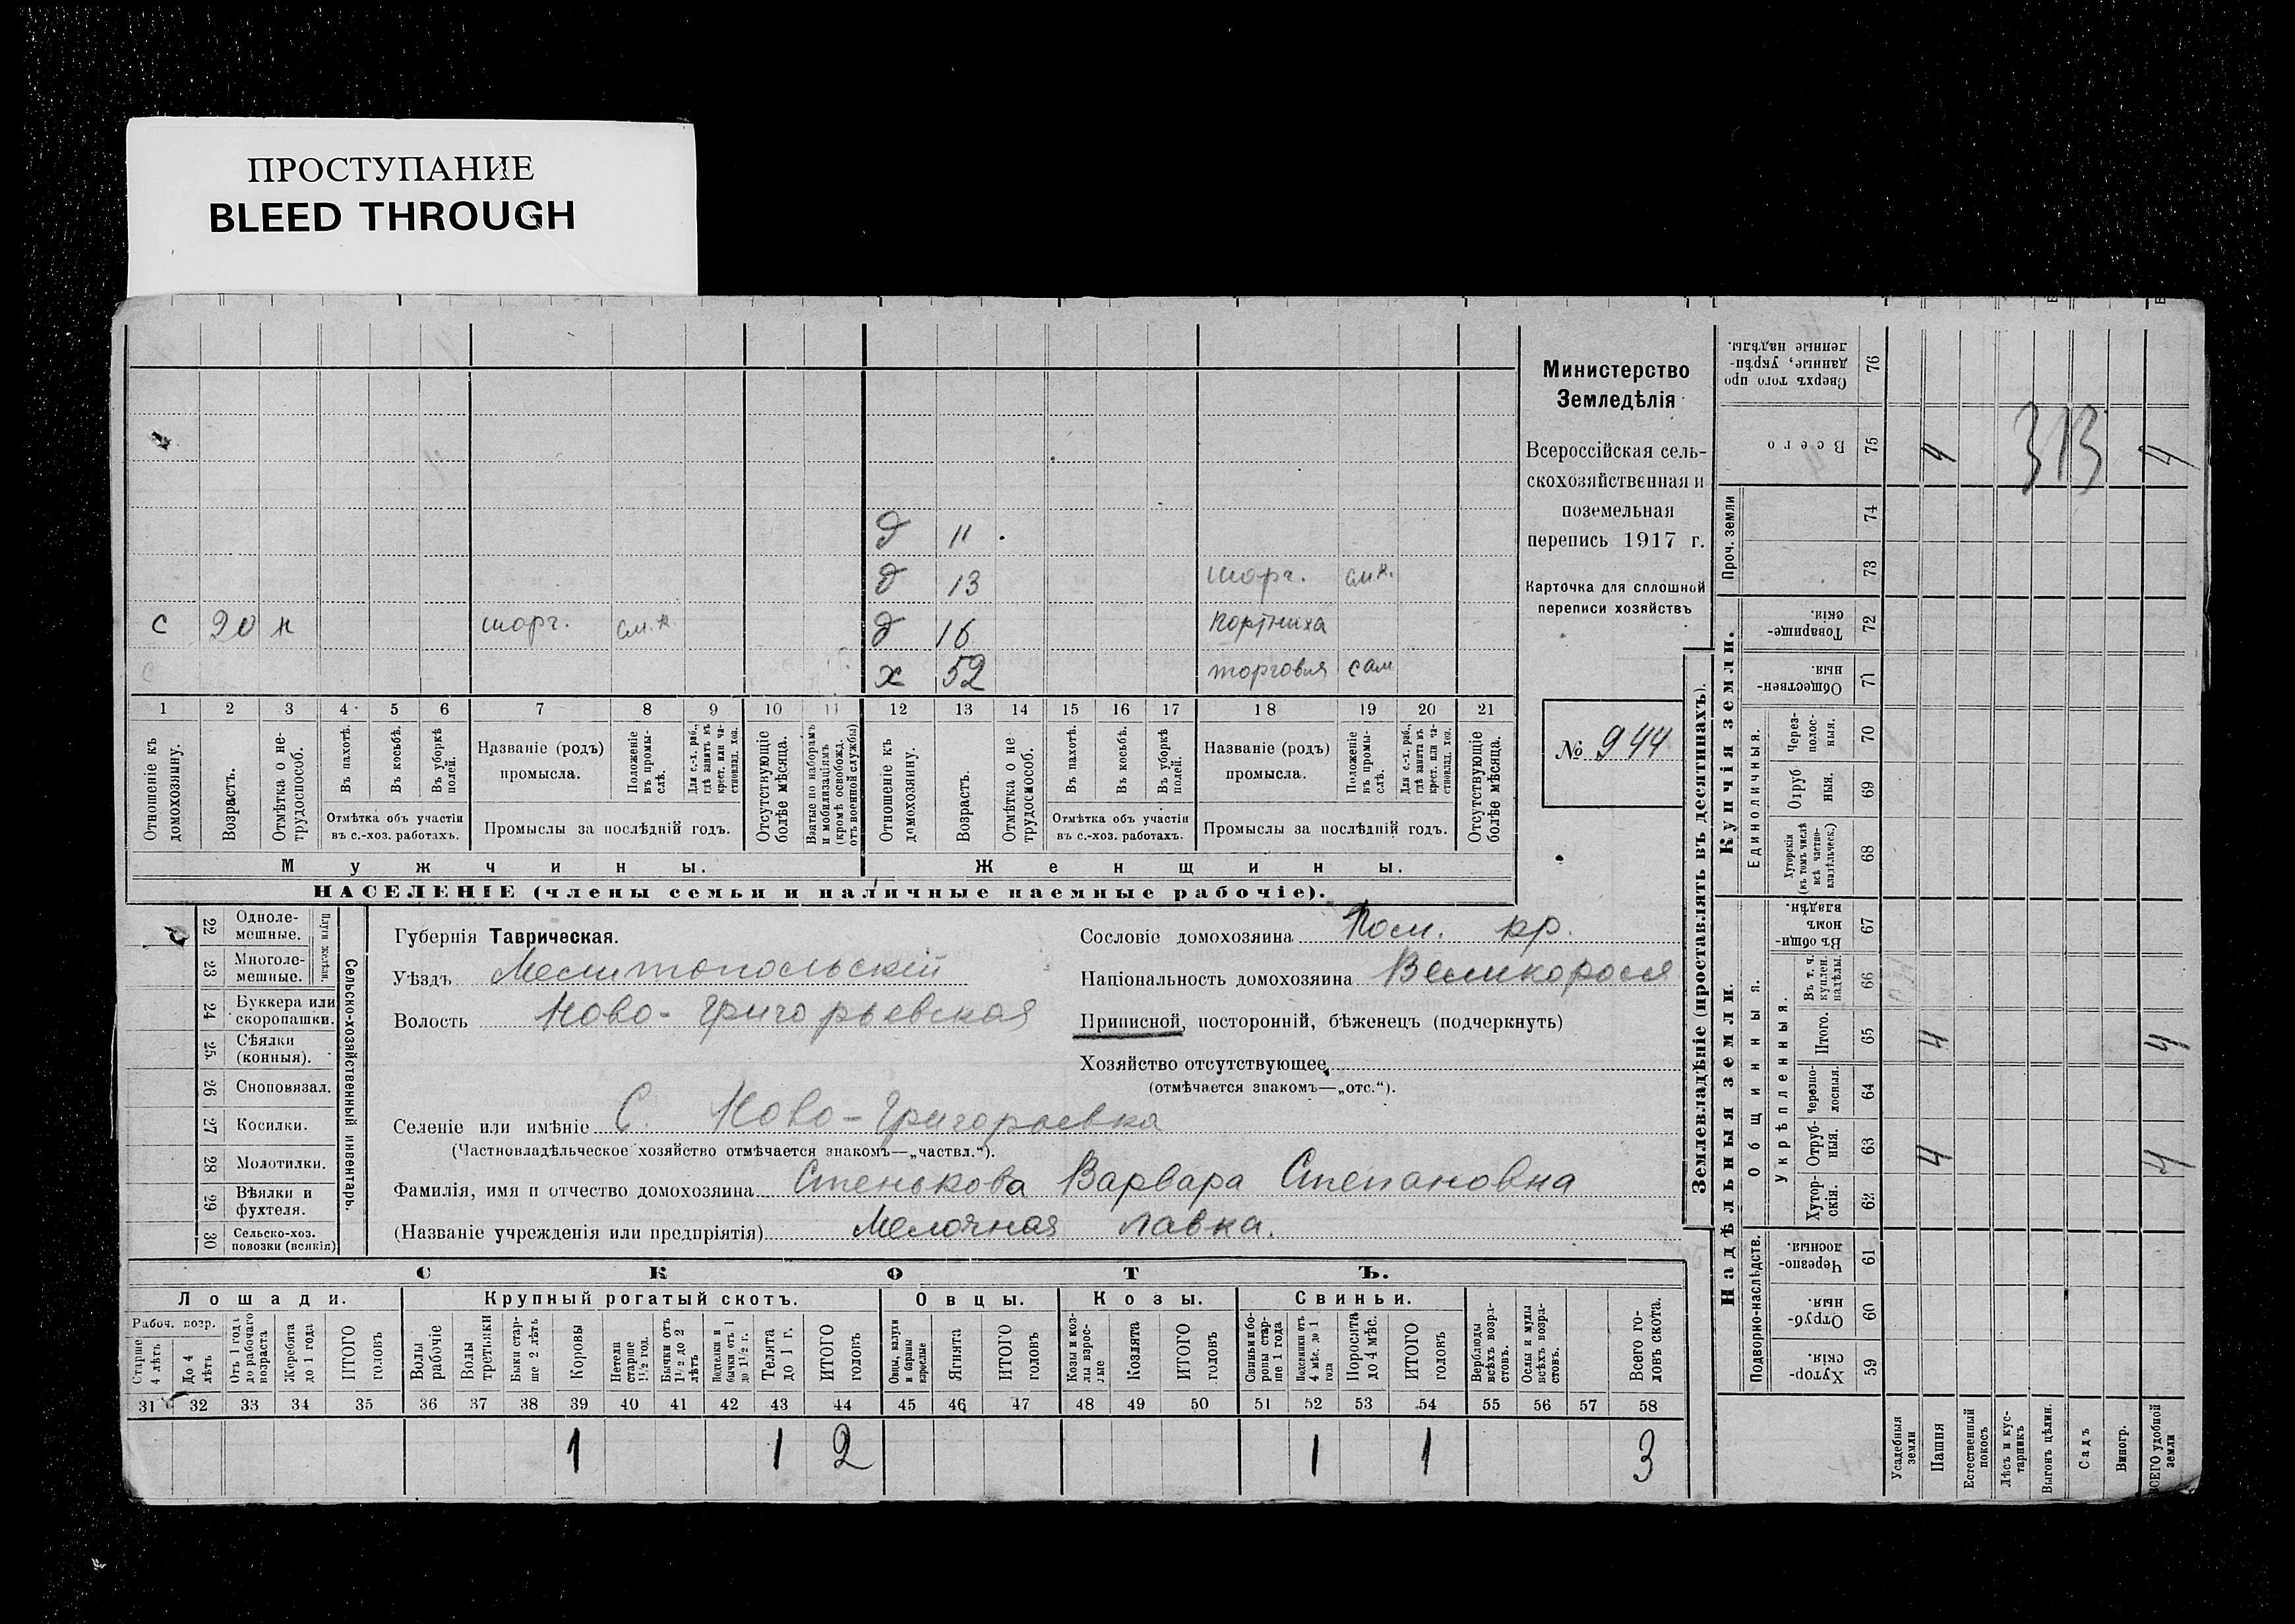 ПРОСТУПАНИЕ
BLEED THROUGH
д 11
д 13 торг. см.к.
с 20 н торг. см.к. д 16 портниха
х 52 торговля сам
1 2 3 4 5 6 7 8 9 10 11 12 13 14 15 16 17 18 19 20 21
Отношеніе къ домохозяину.
Возрастъ.
Отмѣтка о нетрудоспособ.
Въ пахотѣ.
Въ косьбѣ.
Въ уборкѣ полей.
Отмѣтка объ участіи въ с.-хоз. работахъ.
Названіе (родъ) промысла.
Положеніе въ промыслѣ.
Для с.-х. раб., гдѣ занятъ въ крест. или частновлад. хоз.
Промыслы за послѣдній годъ.
Отсутствующіе болѣе мѣсяца.
Взятые по наборамъ и мобилизаціямъ (кромѣ освобожд. отъ военной службы)
Отношеніе къ домохозяину.
Возрастъ.
Отмѣтка о нетрудоспособ.
Въ пахотѣ.
Въ косьбѣ.
Въ уборкѣ полей.
Отмѣтка объ участіи въ с.-хоз. работахъ.
Названіе (родъ) промысла.
Положеніе въ промыслѣ.
Для с.-х. раб., гдѣ занята въ крест. или частновлад. хоз.
Промыслы за послѣдній годъ.
Отсутствующіе болѣе мѣсяца.
Мужчины. Женщины.
НАСЕЛЕНІЕ (члены семьи и наличные наемные рабочіе).
Министерство
Земледѣлія
Всероссійская сель-
скохозяйственная и
поземельная
перепись 1917 г.
Карточка для сплошной
переписи хозяйствъ
№ 944
22 Одноле-
мешные.
23 Многоле-
мешные.
Плуги желѣзн.
24 Буккера или
скоропашки.
25. Сѣялки
(конныя).
26 Сноповязал.
27 Косилки.
28 Молотилки.
29 Вѣялки и
фухтеля.
30 Сельско-хоз.
повозки (всякія)
Сельско-хозяйственный инвентарь.
Губернія Таврическая.
Уѣздъ Мелитопольскій
Волость Ново-Григорьевская
Сословіе домохозяина Пос. кр.
Національность домохозяина Великоросся
Приписной, посторонній, бѣженецъ (подчеркнуть)
Хозяйство отсутствующее
(отмѣчается знакомъ—„отс.“).
Селеніе или имѣніе С. Ново-Григорьевка
(Частновладѣльческое хозяйство отмѣчается знакомъ—„частвл.“).
Фамилія, имя и отчество домохозяина Стенькова Варвара Степановна
(Названіе учрежденія или предпріятія) Мелочная лавка.
СКОТЪ.
Лошади. Крупный рогатый скотъ. Овцы. Козы. Свиньи.
Рабоч. возр.
Старше 4 лѣтъ
До 4 лѣтъ
Отъ 1 года до рабочаго возраста
Жеребята до 1 года
ИТОГО головъ
Волы рабочіе
Волы третьяки
Быки старше 2 лѣтъ
Коровы
Нетели старше 1½ год.
Бычки отъ 1½ до 2 лѣтъ
Телята до 1 г.
ИТОГО головъ
Ягнята
ИТОГО головъ
Козы и козлы взрослые
Козлята
ИТОГО головъ
Подсвинки отъ 4 мѣс. до 1 года
Поросята до 4 мѣс.
ИТОГО головъ
Верблюды всѣхъ возрастовъ.
Ослы и мулы всѣхъ возрастовъ.
Всего головъ скота.
31 32 33 34 35 36 37 38 39 40 41 42 43 44 45 46 47 48 49 50 51 52 53 54 55 56 57 58
1 1 2 1 1 3
Землевладѣніе (проставлять въ десятинахъ).
Купчія земли.
Надѣльныя земли.
Сверхъ того проданные, укрѣпленные надѣлы. 76
Всего 75 4 4
313
Проч. земли 74
73
Товарищескія. 72
Общественныя. 71
Единоличныя.
Черезполосныя. 70
Отрубныя. 69
Хуторскія (въ томъ числѣ всѣ частновладѣльческ.) 68
Общинныя.
Въ общинномъ владѣн. 67
Укрѣпленныя.
Въ т. ч. куплен. надѣлы. 66
Итого. 65 4 4
Черезполосныя. 64
Отрубныя. 63 4 4
Хуторскія. 62
Подворно-наслѣдств.
Черезполосныя. 61
Отрубныя 60
Хуторскія. 59
Усадебныя земли
Пашня
Естественный покосъ
Лѣсъ и кустарникъ
Выгонъ цѣлин.
Садъ
Виногр.
ВСЕГО удобной земли